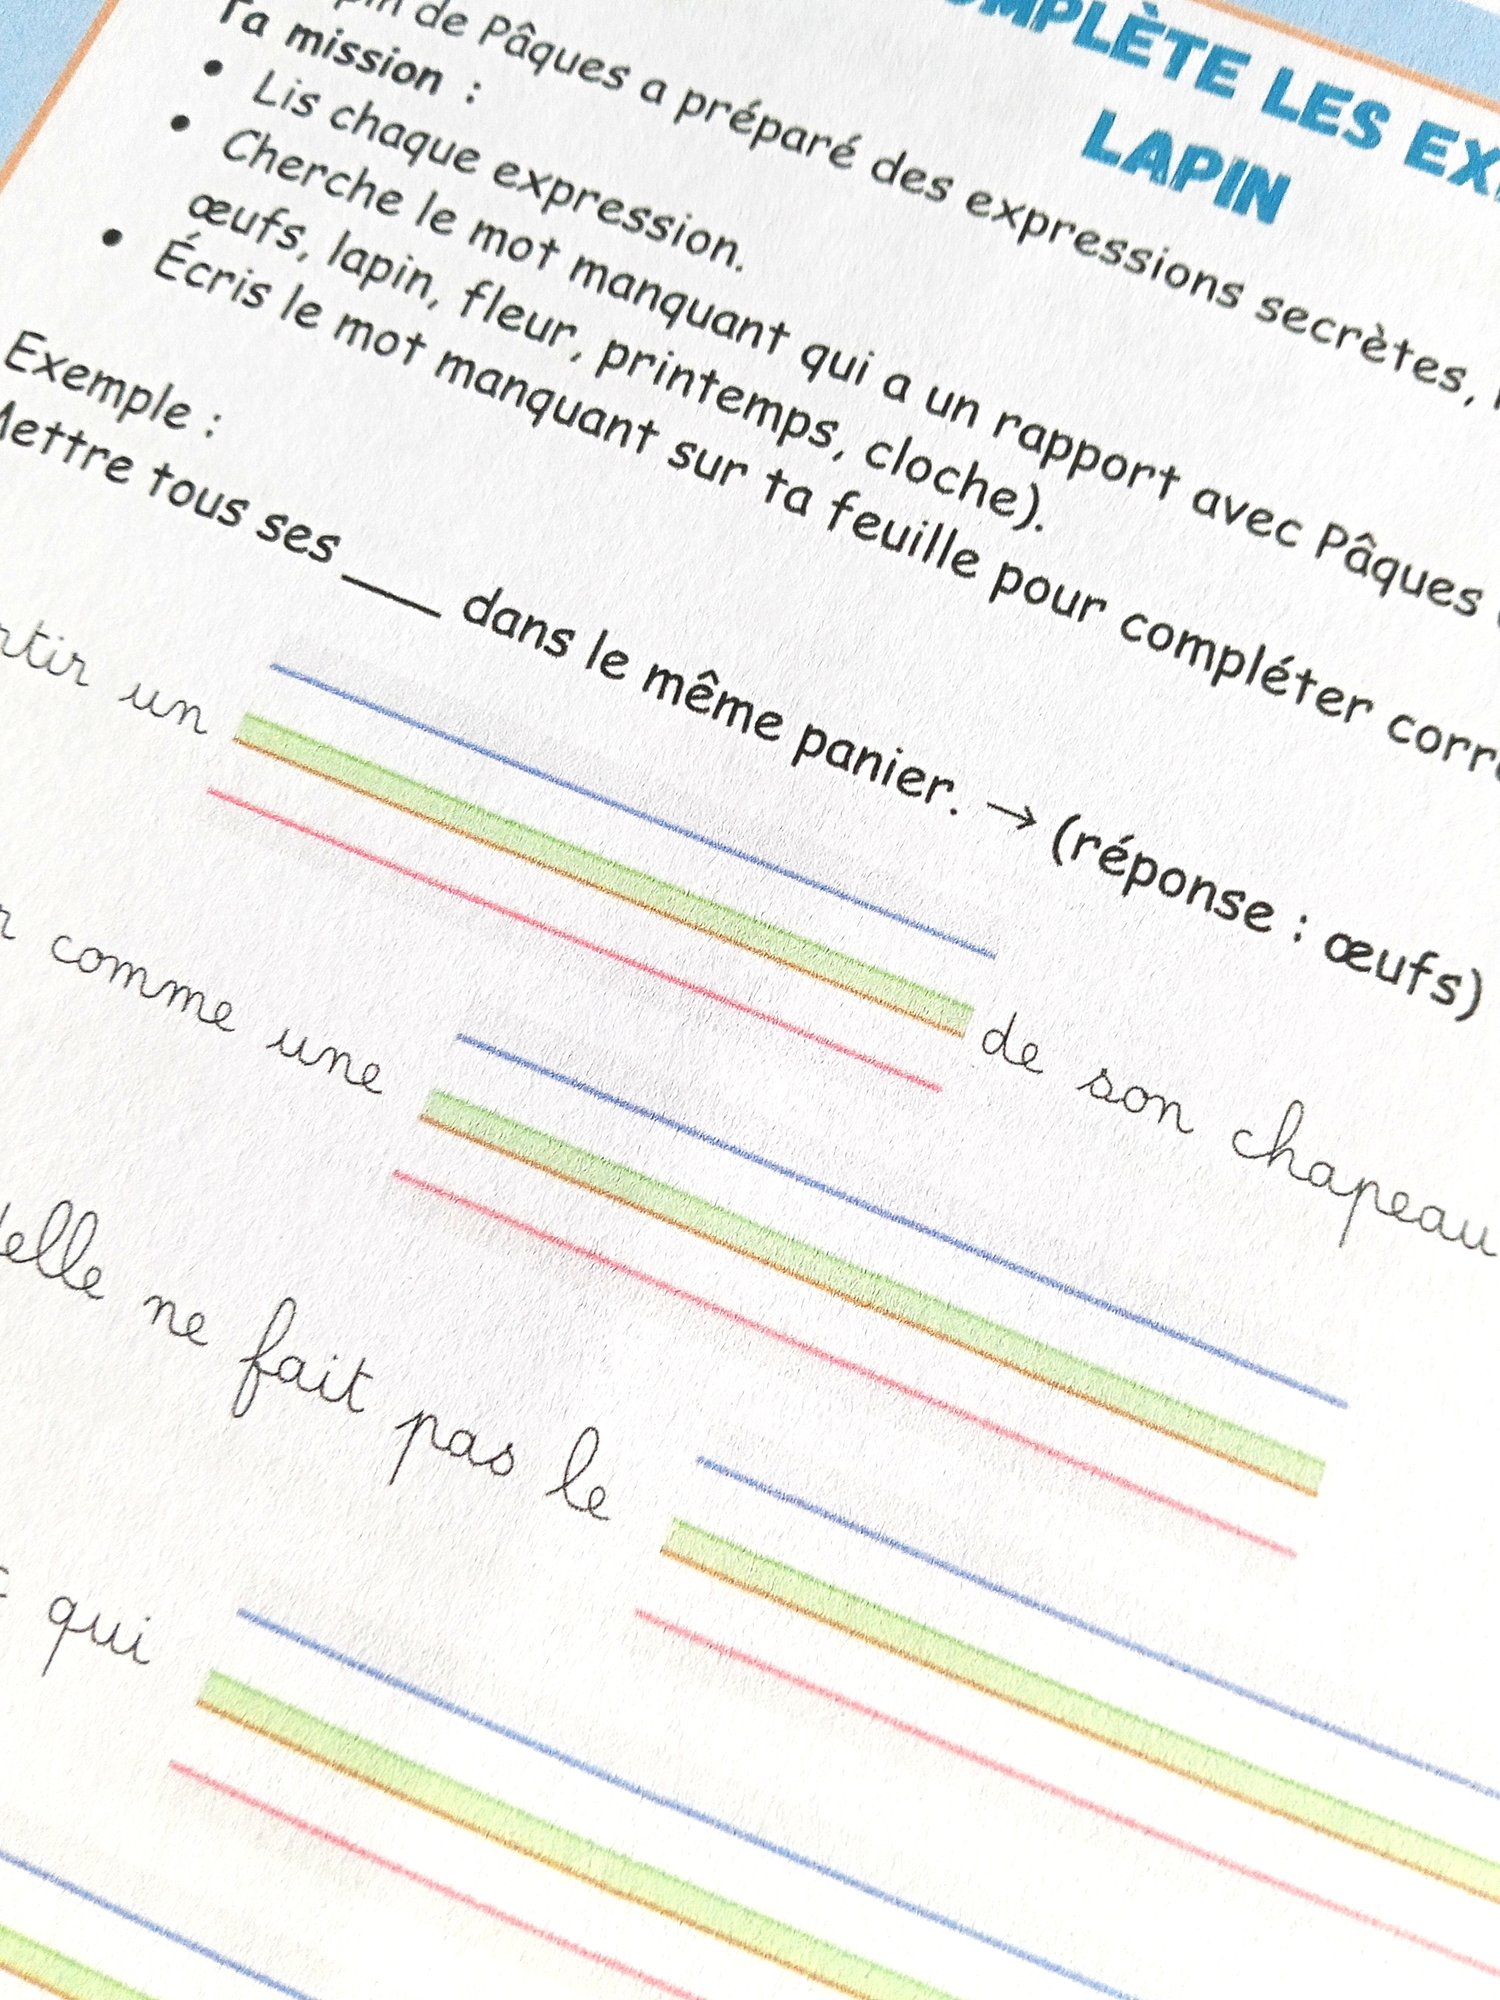 LES
LAPIN
de Pâques a préparé des expressions secrètes,
Ta mission :
• Lis chaque expression.
• Cherche le mot manquant qui a un rapport avec Pâques
œufs, lapin, fleur, printemps, cloche).
• Écris le mot manquant sur ta feuille pour compléter
Exemple :
Mettre tous ses ___ dans le même panier. → (réponse : œufs)
un
de son chapeau
comme une
ne fait pas le
qui